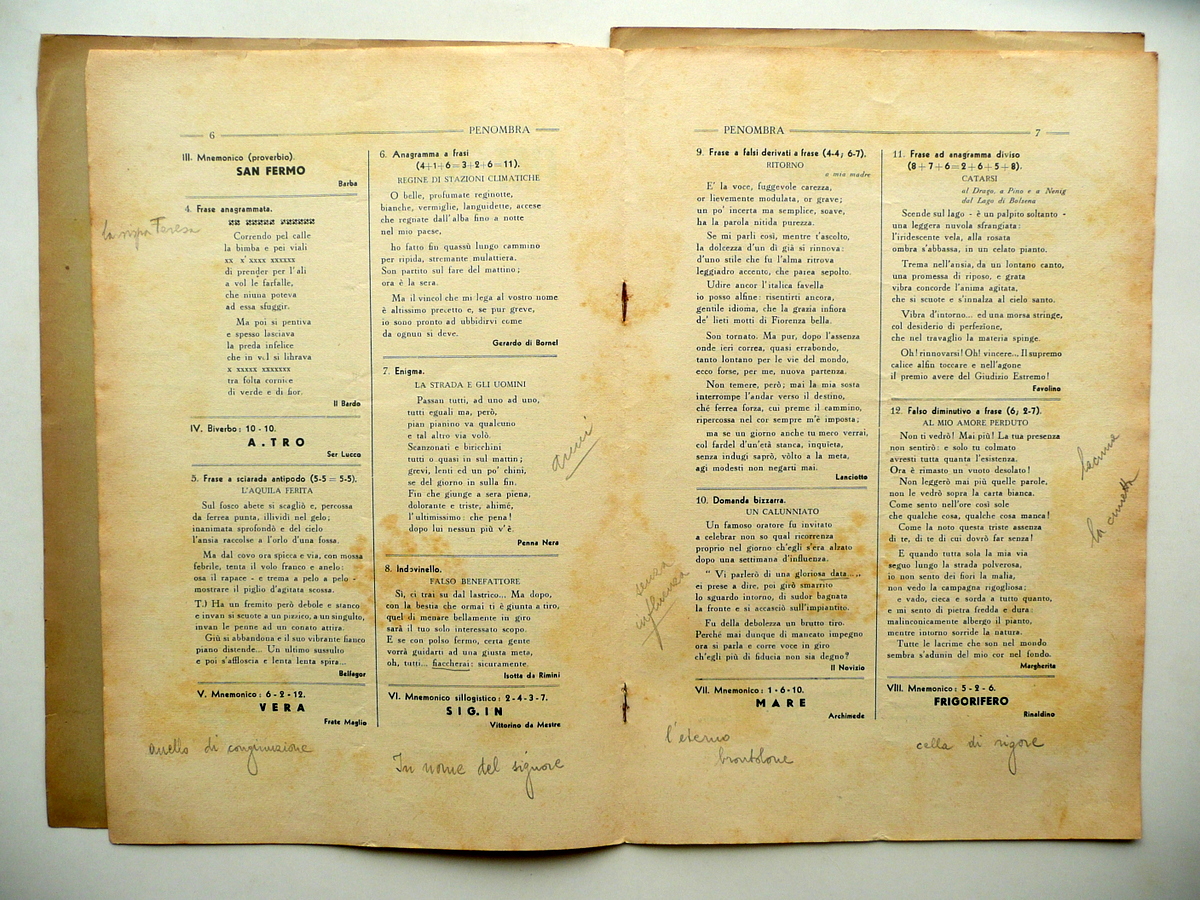 6
PENOMBRA
III. Mnemonico (proverbio).
SAN FERMO
Barba
4. Frase anagrammata.
xx xxxxx xxxxxx xxxxxxx
Correndo pel calle
la bimba e pei viali
xx x' xxxx xxxxxx
di prender per l'ali
a vol le farfalle,
che niuna poteva
ad essa sfuggir.
Ma poi si pentiva
e spesso lasciava
la preda infelice
che in vol si librava
x xxxxx xxxxxxx
tra folta cornice
di verde e di fior.
Il Bardo
IV. Biverbo: 10 - 10.
A.TRO
Ser Lucco
5. Frase a sciarada antipodo (5-5 = 5-5).
L'AQUILA FERITA
Sul fosco abete si scagliò e, percossa
da ferrea punta, illividì nel gelo;
inanimata sprofondò e del cielo
l'ansia raccolse a l'orlo d'una fossa.
Ma dal covo ora spicca e via, con mossa
febrile, tenta il volo franco e anelo:
osa il rapace - e trema a pelo a pelo -
mostrare il piglio d'agitata scossa.
T.) Ha un fremito però debole e stanco
e invan si scuote a un pizzico, a un singulto,
invan le penne ad un conato attira.
Giù si abbandona e il suo vibrante fianco
piano distende... Un ultimo sussulto
e poi s'affloscia e lenta lenta spira...
Belfagor
V. Mnemonico: 6 - 2 - 12.
VERA
Frate Maglio
anello di congiunzione
6. Anagramma a frasi
(4+1+6=3+2+6=11).
REGINE DI STAZIONI CLIMATICHE
O belle, profumate reginotte,
bianche, vermiglie, languidette, accese
che regnate dall'alba fino a notte
nel mio paese,
ho fatto fin quassù lungo cammino
per ripida, stremante mulattiera.
Son partito sul fare del mattino;
ora è la sera.
Ma il vincol che mi lega al vostro nome
è altissimo precetto e, se pur greve,
io sono pronto ad ubbidirvi come
da ognun si deve.
Gerardo di Bornel
7. Enigma.
LA STRADA E GLI UOMINI
Passan tutti, ad uno ad uno,
tutti eguali ma, però,
pian pianino va qualcuno
e tal altro via volò.
Scanzonati e biricchini
tutti o quasi in sul mattin;
grevi, lenti ed un po' chini,
se del giorno in sulla fin.
Fin che giunge a sera piena,
dolorante e triste, ahimè,
l'ultimissimo: che pena!
dopo lui nessun più v'è.
Penna Nera
8. Indovinello.
FALSO BENEFATTORE
Sì, ci trai su dal lastrico... Ma dopo,
con la bestia che ormai ti è giunta a tiro,
quel di menare bellamente in giro
sarà il tuo solo interessato scopo.
E se con polso fermo, certa gente
vorrà guidarti ad una giusta meta,
oh, tutti... fiaccherai: sicuramente.
Isotta da Rimini
VI. Mnemonico sillogistico: 2-4-3-7.
SIG.IN
Vittorino da Mestre
In nome del signore
PENOMBRA
7
9. Frase a falsi derivati a frase (4-4; 6-7).
RITORNO
a mia madre
E' la voce, fuggevole carezza,
or lievemente modulata, or grave;
un po' incerta ma semplice, soave,
ha la parola nitida purezza.
Se mi parli così, mentre t'ascolto,
la dolcezza d'un dì già si rinnova:
d'uno stile che fu l'alma ritrova
leggiadro accento, che parea sepolto.
Udire ancor l'italica favella
io posso alfine: risentirti ancora,
gentile idioma, che la grazia infiora
de' lieti motti di Fiorenza bella.
Son tornato. Ma pur, dopo l'assenza
onde ieri correa, quasi errabondo,
tanto lontano per le vie del mondo,
ecco forse, per me, nuova partenza.
Non temere, però; mai la mia sosta
interrompe l'andar verso il destino,
chè ferrea forza, cui preme il cammino,
ripercossa nel cor sempre m'è imposta;
ma se un giorno anche tu meco verrai,
col fardel d'un'età stanca, inquieta,
senza indugi saprò, vòlto a la meta,
agi modesti non negarti mai.
Lanciotto
10. Domanda bizzarra.
UN CALUNNIATO
Un famoso oratore fu invitato
a celebrar non so qual ricorrenza
proprio nel giorno ch'egli s'era alzato
dopo una settimana d'influenza.
" Vi parlerò di una gloriosa data ...,,
ei prese a dire, poi girò smarrito
lo sguardo intorno, di sudor bagnata
la fronte e si accasciò sull'impiantito.
Fu della debolezza un brutto tiro.
Perchè mai dunque di mancato impegno
ora si parla e corre voce in giro
ch'egli più di fiducia non sia degno?
Il Novizio
senza
influenza
VII. Mnemonico: 1 - 6 - 10.
MARE
Archimede
l'eterno
brontolone
11. Frase ad anagramma diviso
(8+7+6=2+6+5+8).
CATARSI
al Drago, a Pino e a Nonig
dal Lago di Bolsena
Scende sul lago - è un palpito soltanto -
una leggera nuvola sfrangiata:
l'iridescente vela, alla rosata
ombra s'abbassa, in un celato pianto.
Trema nell'ansia, da un lontano canto,
una promessa di riposo, e grata
vibra concorde l'anima agitata,
che si scuote e s'innalza al cielo santo.
Vibra d'intorno... ed una morsa stringe,
col desiderio di perfezione,
che nel travaglio la materia spinge.
Oh! rinnovarsi! Oh! vincere... Il supremo
calice alfin toccare e nell'agone
il premio avere del Giudizio Estremo!
Favolino
12. Falso diminutivo a frase (6; 2-7).
AL MIO AMORE PERDUTO
Non ti vedrò! Mai più! La tua presenza
non sentirò: e solo tu colmato
avresti tutta quanta l'esistenza.
Ora è rimasto un vuoto desolato!
Non leggerò mai più quelle parole,
non le vedrò sopra la carta bianca.
Come sento nell'ore così sole
che qualche cosa, qualche cosa manca!
Come la noto questa triste assenza
di te, di te di cui dovrò far senza!
E quando tutta sola la mia via
seguo lungo la strada polverosa,
io non sento dei fiori la malia,
non vedo la campagna rigogliosa;
e vado, cieca e sorda a tutto quanto,
e mi sento di pietra fredda e dura:
malinconicamente albergo il pianto,
mentre intorno sorride la natura.
Tutte le lacrime che son nel mondo
sembra s'adunin del mio cor nel fondo.
Margherita
lacuna
VIII. Mnemonico: 5 - 2 - 6.
FRIGORIFERO
Rinaldino
cella di rigore